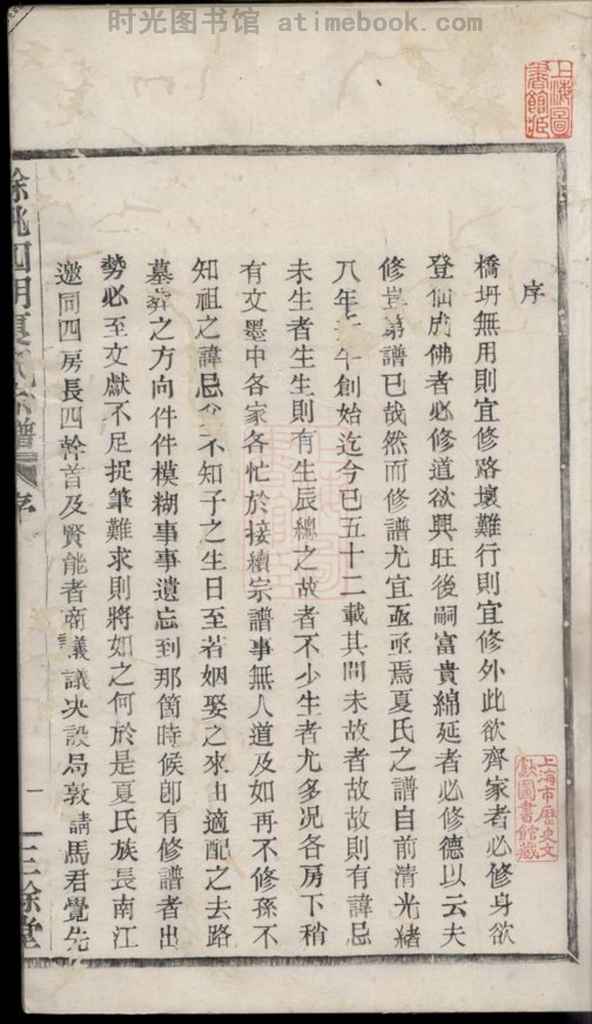 时光图书馆 atimebook.com
上海圖書館藏
序
橋坍無用則宜修路壞難行則宜修外此欲齊家者必修身欲
登仙成佛者必修道欲興旺後嗣富貴綿延者必修德以云夫
修豈第譜已哉然而修譜尤宜亟亟焉夏氏之譜自前清光緒
八年壬午創始迄今已五十二載其間未故者故故則有諱忌
未生者生生則有生辰總之故者不少生者尤多况各房下稍
有文墨中各家各忙於接續宗譜事無人道及如再不修孫不
知祖之諱忌父不知子之生日至若姻娶之來由適配之去路
墓葬之方向件件模糊事事遺忘到那箇時候卽有修譜者出
勢必至文獻不足捉筆難求則將如之何於是夏氏族長南江
邀同四房長四幹首及賢能者商議議决設局敦請馬君覺先
上海市歷史文獻圖書館藏
餘姚四明夏氏宗譜
序
一
三餘堂